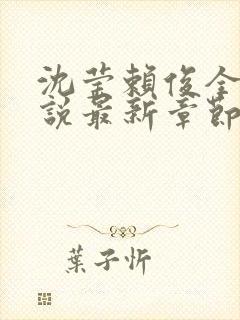 沈莹賴俊全
說最新章節
葉子忻